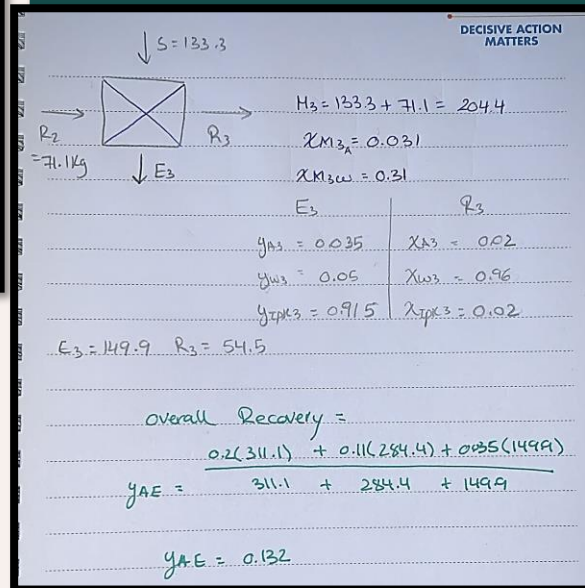 DECISIVE ACTION
MATTERS
S = 133.3
M3 = 133.3 + 71.1 = 204.4
R2
= 71.1 Kg
R3
xM3A = 0.031
E3
xM3w = 0.31
E3 R3
yA3 = 0.035 xA3 = 0.02
yw3 = 0.05 xw3 = 0.96
yIPK3 = 0.915 xIPK3 = 0.02
E3 = 149.9 R3 = 54.5
Overall Recovery =
0.2(311.1) + 0.11(284.4) + 0.035(149.9)
yAE =
311.1 + 284.4 + 149.9
yAE = 0.132